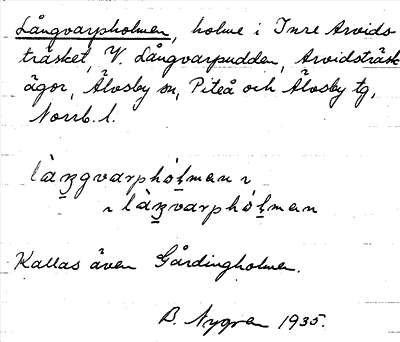 Långvarpholmen, holme i Inre Arvids-
träsket, V. Långvarpudden, Arvidsträsk
ägor, Älvsby sn, Piteå och Älvsby tg,
Norrb. l.
làŋgvarphólman
làŋvarphólman
Kallas även Gårdingholmen.
B. Nygren 1935.